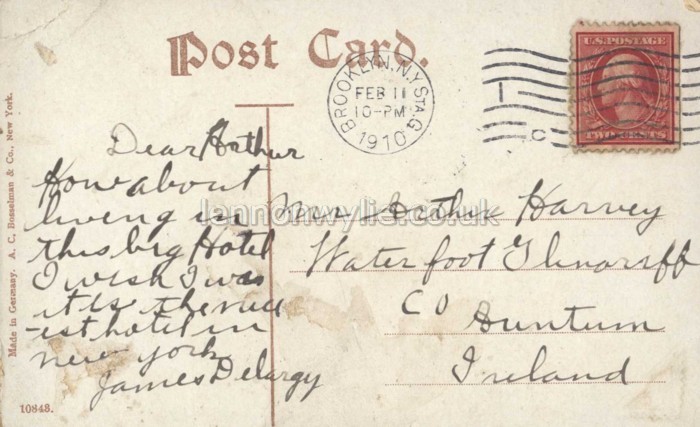 Post Card.
BROOKLYN, N.Y. STA. G.
FEB 11
10-PM
1910
C
U.S. POSTAGE
TWO CENTS
Dear Arthur
How about
living in
this big Hotel
I wish I was
it is the
-est hotel in
new york
James Delargy
Mr Arthur Harvey
Waterfoot Glenariff
CO
Auntum
Ireland
lennonwylie.co.uk
Made in Germany. A. C. Bosselman & Co., New York.
10843.